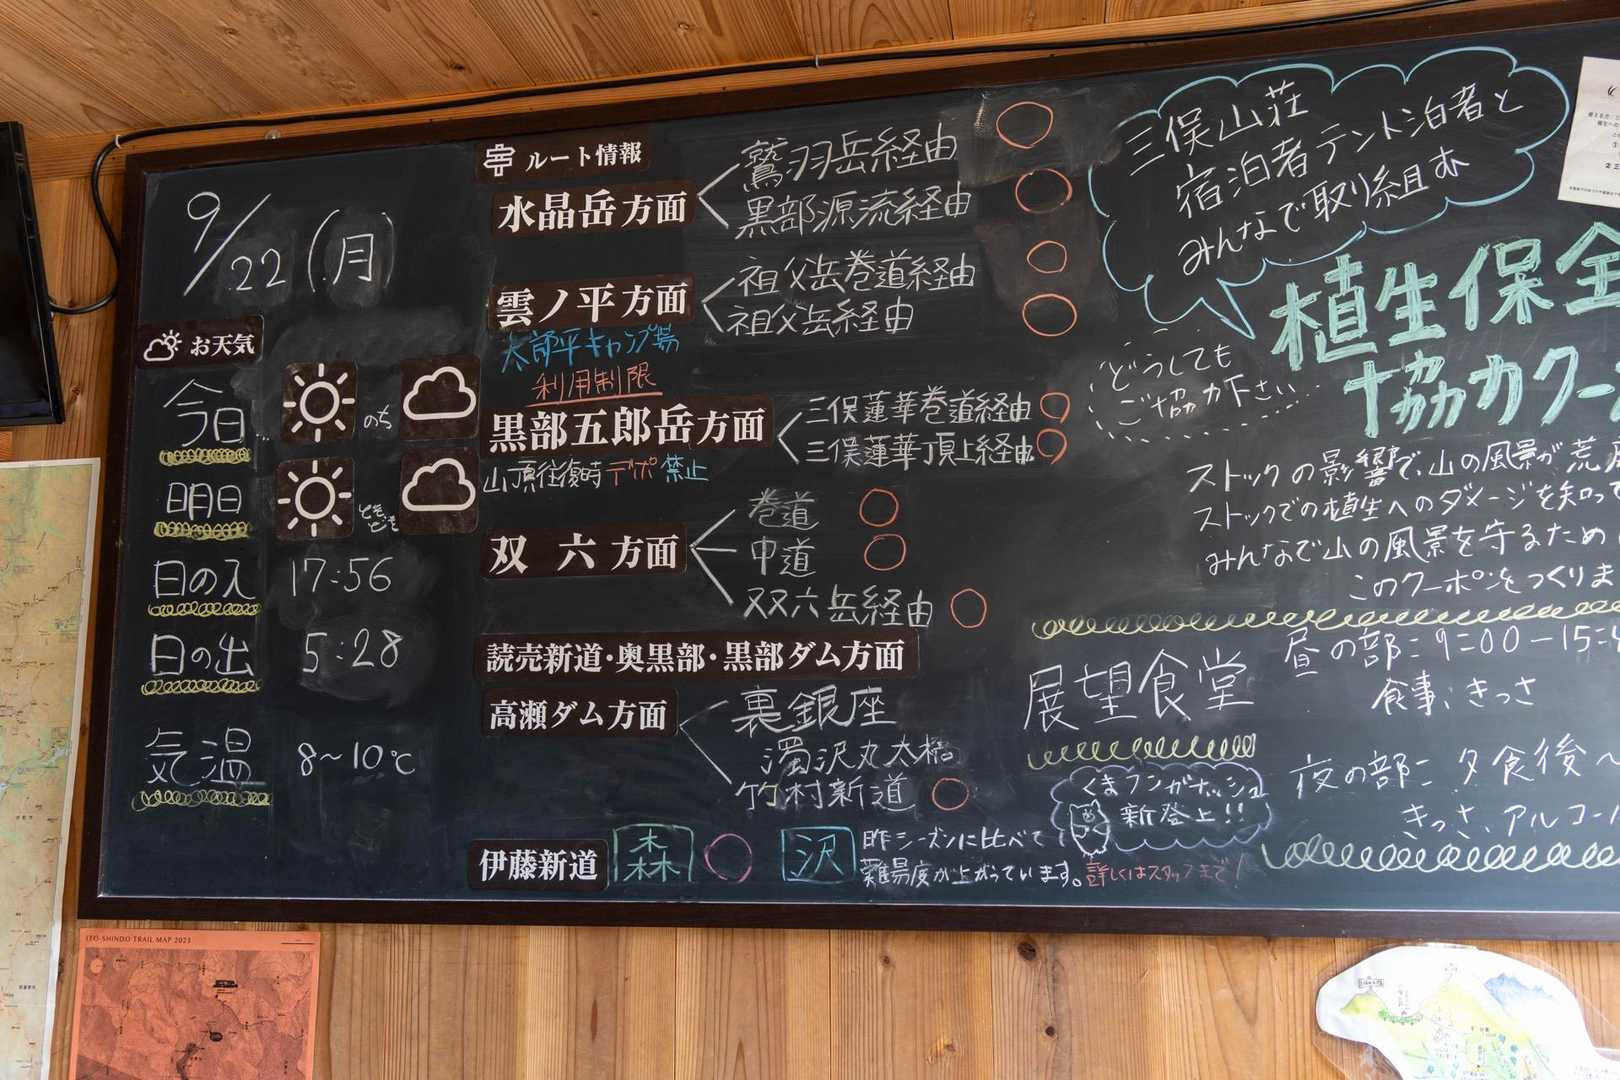 9/22(月)
お天気
今日 のち
明日 ときどき
日の入 17:56
日の出 5:28
気温 8~10℃
ルート情報
水晶岳方面
鷲羽岳経由 ○
黒部源流経由 ○
雲ノ平方面
祖父岳巻道経由 ○
祖父岳経由 ○
太郎平キャンプ場
利用制限
黒部五郎岳方面
三俣蓮華巻道経由 ○
三俣蓮華頂上経由 ○
山頂往復時デポ禁止
双六方面
巻道 ○
中道 ○
双六岳経由 ○
読売新道・奥黒部・黒部ダム方面
高瀬ダム方面
裏銀座
濁沢丸太橋
竹村新道 ○
伊藤新道 森 ○ 沢
昨シーズンに比べて
難易度が上がっています。詳しくはスタッフまで!
三俣山荘
宿泊者テント泊者と
みんなで取り組む
植生保全
協力クー
どうしても
ご協力下さい
ストックの影響で、山の風景が荒
ストックでの植生へのダメージを知って
みんなで山の風景を守るため
このクーポンをつくりま
展望食堂
昼の部: 9:00-15:
食事、きっさ
夜の部: 夕食後~
きっさ、アルコー
くまランガナッシュ
新登上!!
ITO-SHINDO TRAIL MAP 2023